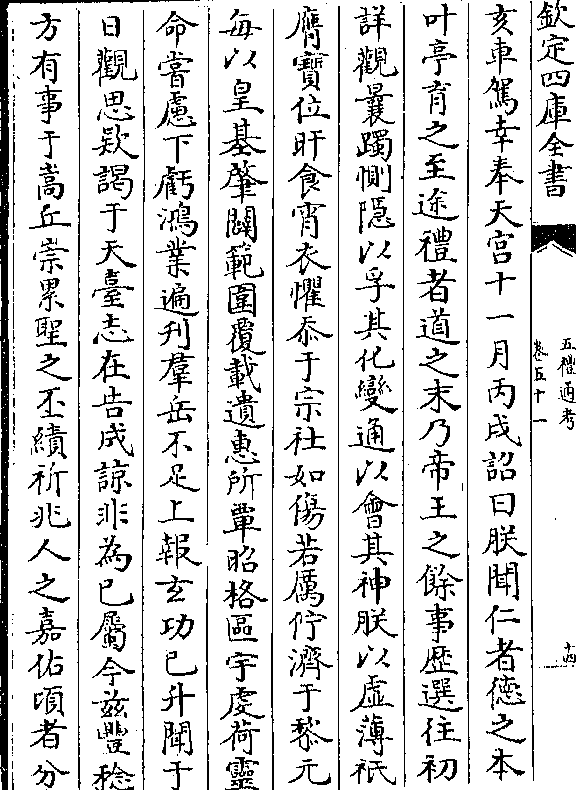 欽定四庫全書
五禮通考
卷五十一
十四
亥車駕幸奉天宮十一月丙戌詔曰朕聞仁者德之本
叶亭育之至途禮者道之末乃帝王之餘事歴選往初
詳觀曩躅惻隱以孚其化變通以會其神朕以虚薄祗
膺寶位旰食宵衣懼忝于宗社如傷若厲佇濟于黎元
每以皇基肇闢範圍覆載遺惠所覃昭格區宇虔荷靈
命嘗慮下虧鴻業遍刋羣岳不足上報玄功已升聞于
日觀思欵謁于天臺志在告成諒非為已屬今兹豐稔
方有事于嵩丘崇累聖之丕績祈兆人之嘉佑頃者分